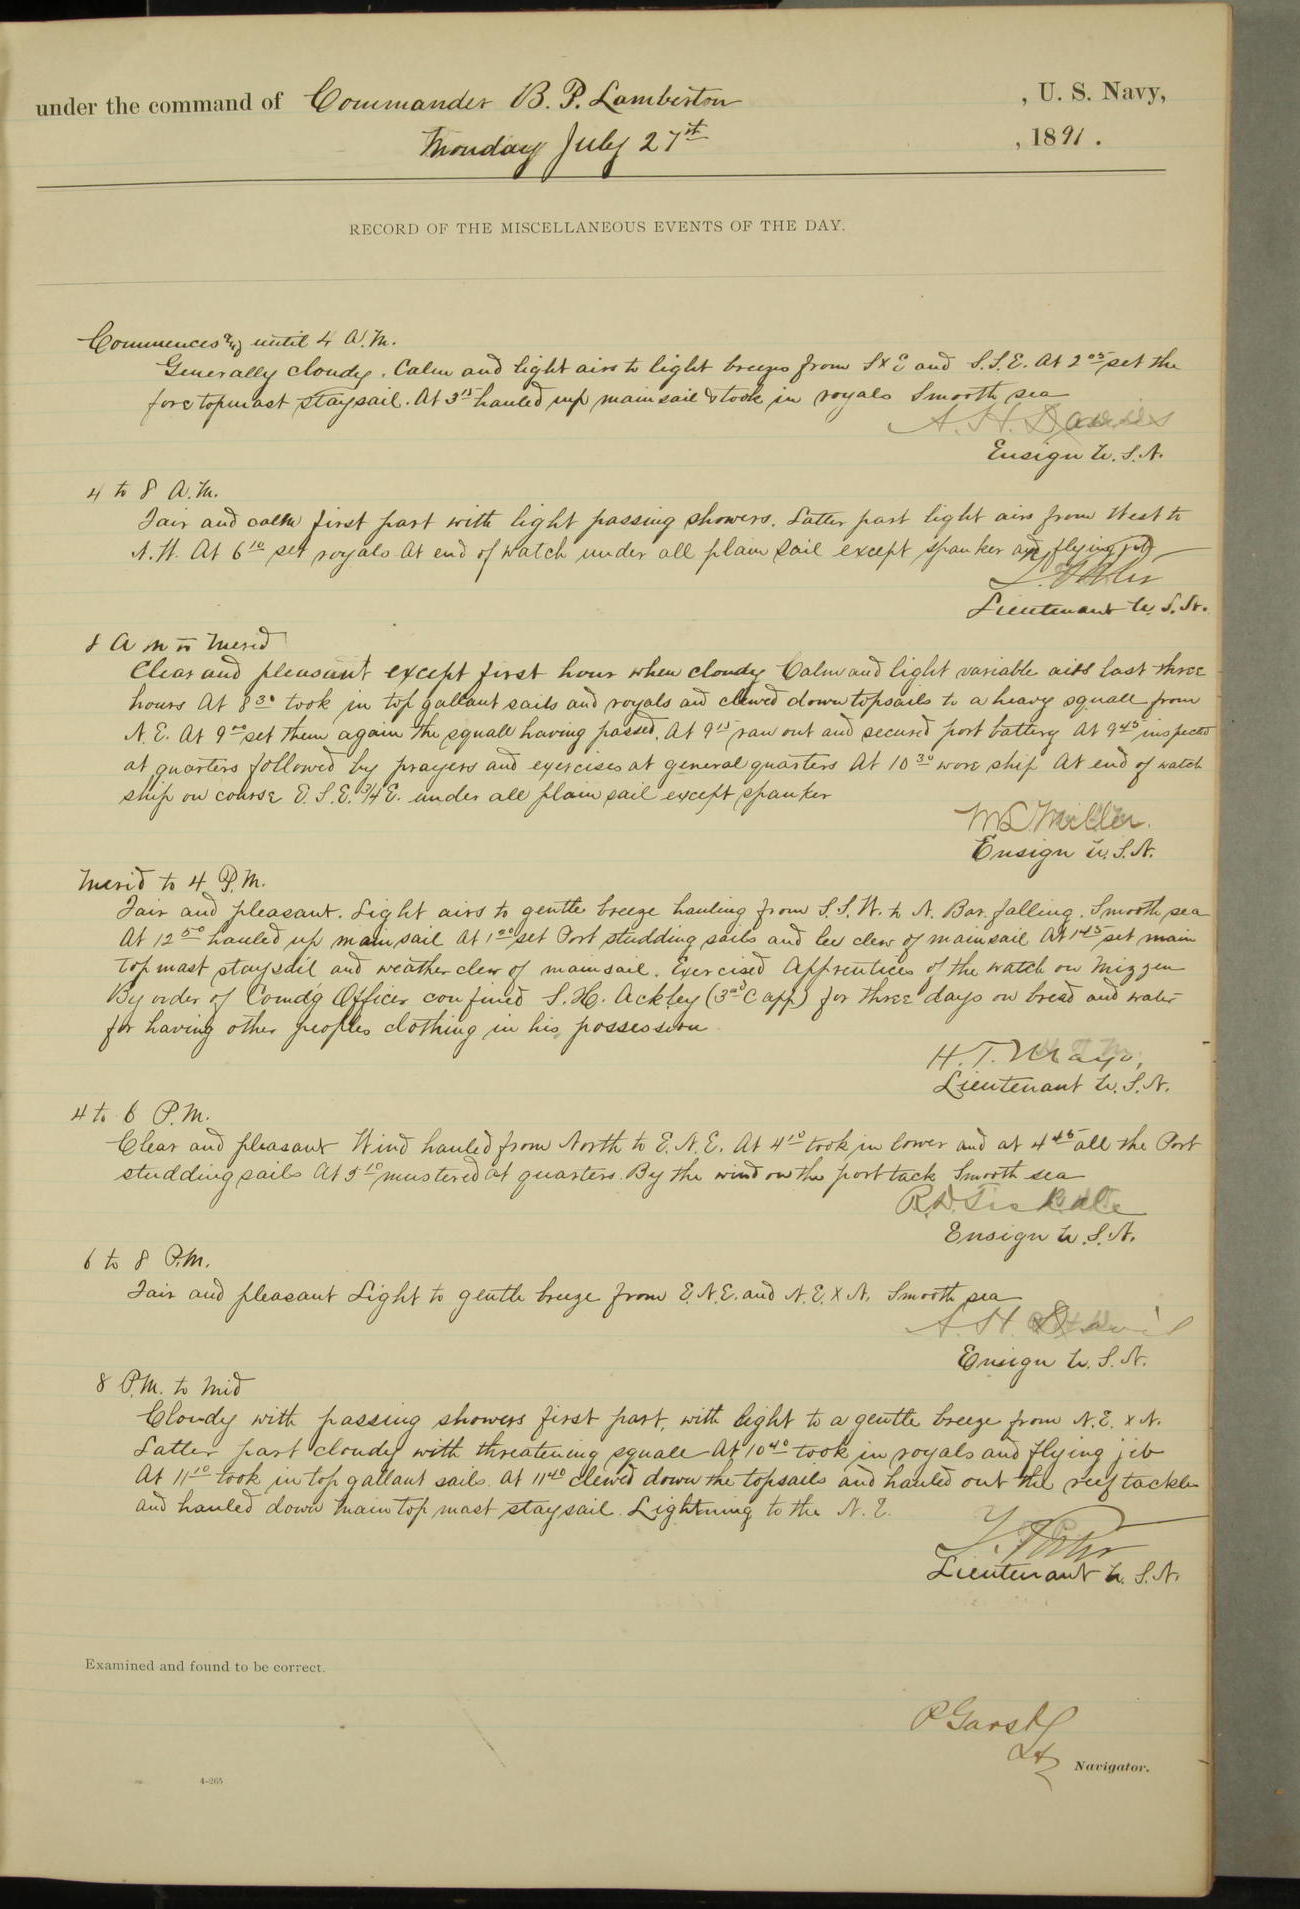 under the command of Commander B. P. Lamberton , U. S. Navy,
Monday July 27st , 1891.
RECORD OF THE MISCELLANEOUS EVENTS OF THE DAY.
Commences and until 4 A.M.
Generally cloudy. Calm and light airs to light breezes from S x E and S.S.E. At 2 05 set the
fore topmast staysail. At 3 15 hauled up mainsail & took in royals Smooth sea
A. H. Davis
Ensign U.S.N.
4 to 8 A.M.
Fair and calm first part with light passing showers. Latter part light airs from West to
N.W. At 6 10 set royals At end of watch under all plain sail except spanker and flying jib
Lieutenant U.S.N.
8 A M to Merid
Clear and pleasant except first hour when cloudy Calm and light variable airs last three
hours At 8 30 took in top gallant sails and royals and clewed down topsails to a heavy squall from
N.E. At 9 00 set them again the squall having passed. At 9 15 ran out and secured port battery At 9 45 inspected
at quarters followed by prayers and exercises at general quarters At 10 30 wore ship At end of watch
ship on course E.S.E. 3/4 E. under all plain sail except spanker
M L Miller.
Ensign U.S.N.
Merid to 4 P.M.
Fair and pleasant. Light airs to gentle breeze hauling from S.S.W. to N. Bar. falling. Smooth sea
At 12 50 hauled up mainsail At 1 00 set Port studding sails and lee clew of mainsail At 1 45 set main
top mast staysail and weather clew of mainsail. Exercised Apprentices of the watch on Mizzen
By order of Comd'g Officer confined S. H. Ackley (3rd C app) for three days on bread and water
for having other peoples clothing in his possession
H. T. Mayo,
Lieutenant U.S.N.
4 to 6 P.M.
Clear and pleasant Wind hauled from North to E.N.E. At 4 10 took in lower and at 4 45 all the Port
studding sails At 5 10 mustered at quarters. By the wind on the port tack Smooth sea
R.D. Tisdale
Ensign U.S.N.
6 to 8 P.M.
Fair and pleasant Light to gentle breeze from E.N.E. and N.E. x N. Smooth sea
A. H. Davis
Ensign U.S.N.
8 P.M. to Mid
Cloudy with passing showers first part, with light to a gentle breeze from N.E. x N.
Latter part cloudy with threatening squall At 10 40 took in royals and flying jib
At 11 10 took in top gallant sails. At 11 40 clewed down the topsails and hauled out the reef tackles
and hauled down main top mast staysail. Lightning to the N.E.
Lieutenant U.S.N.
Examined and found to be correct.
P Garst
Lt Navigator.
4-265